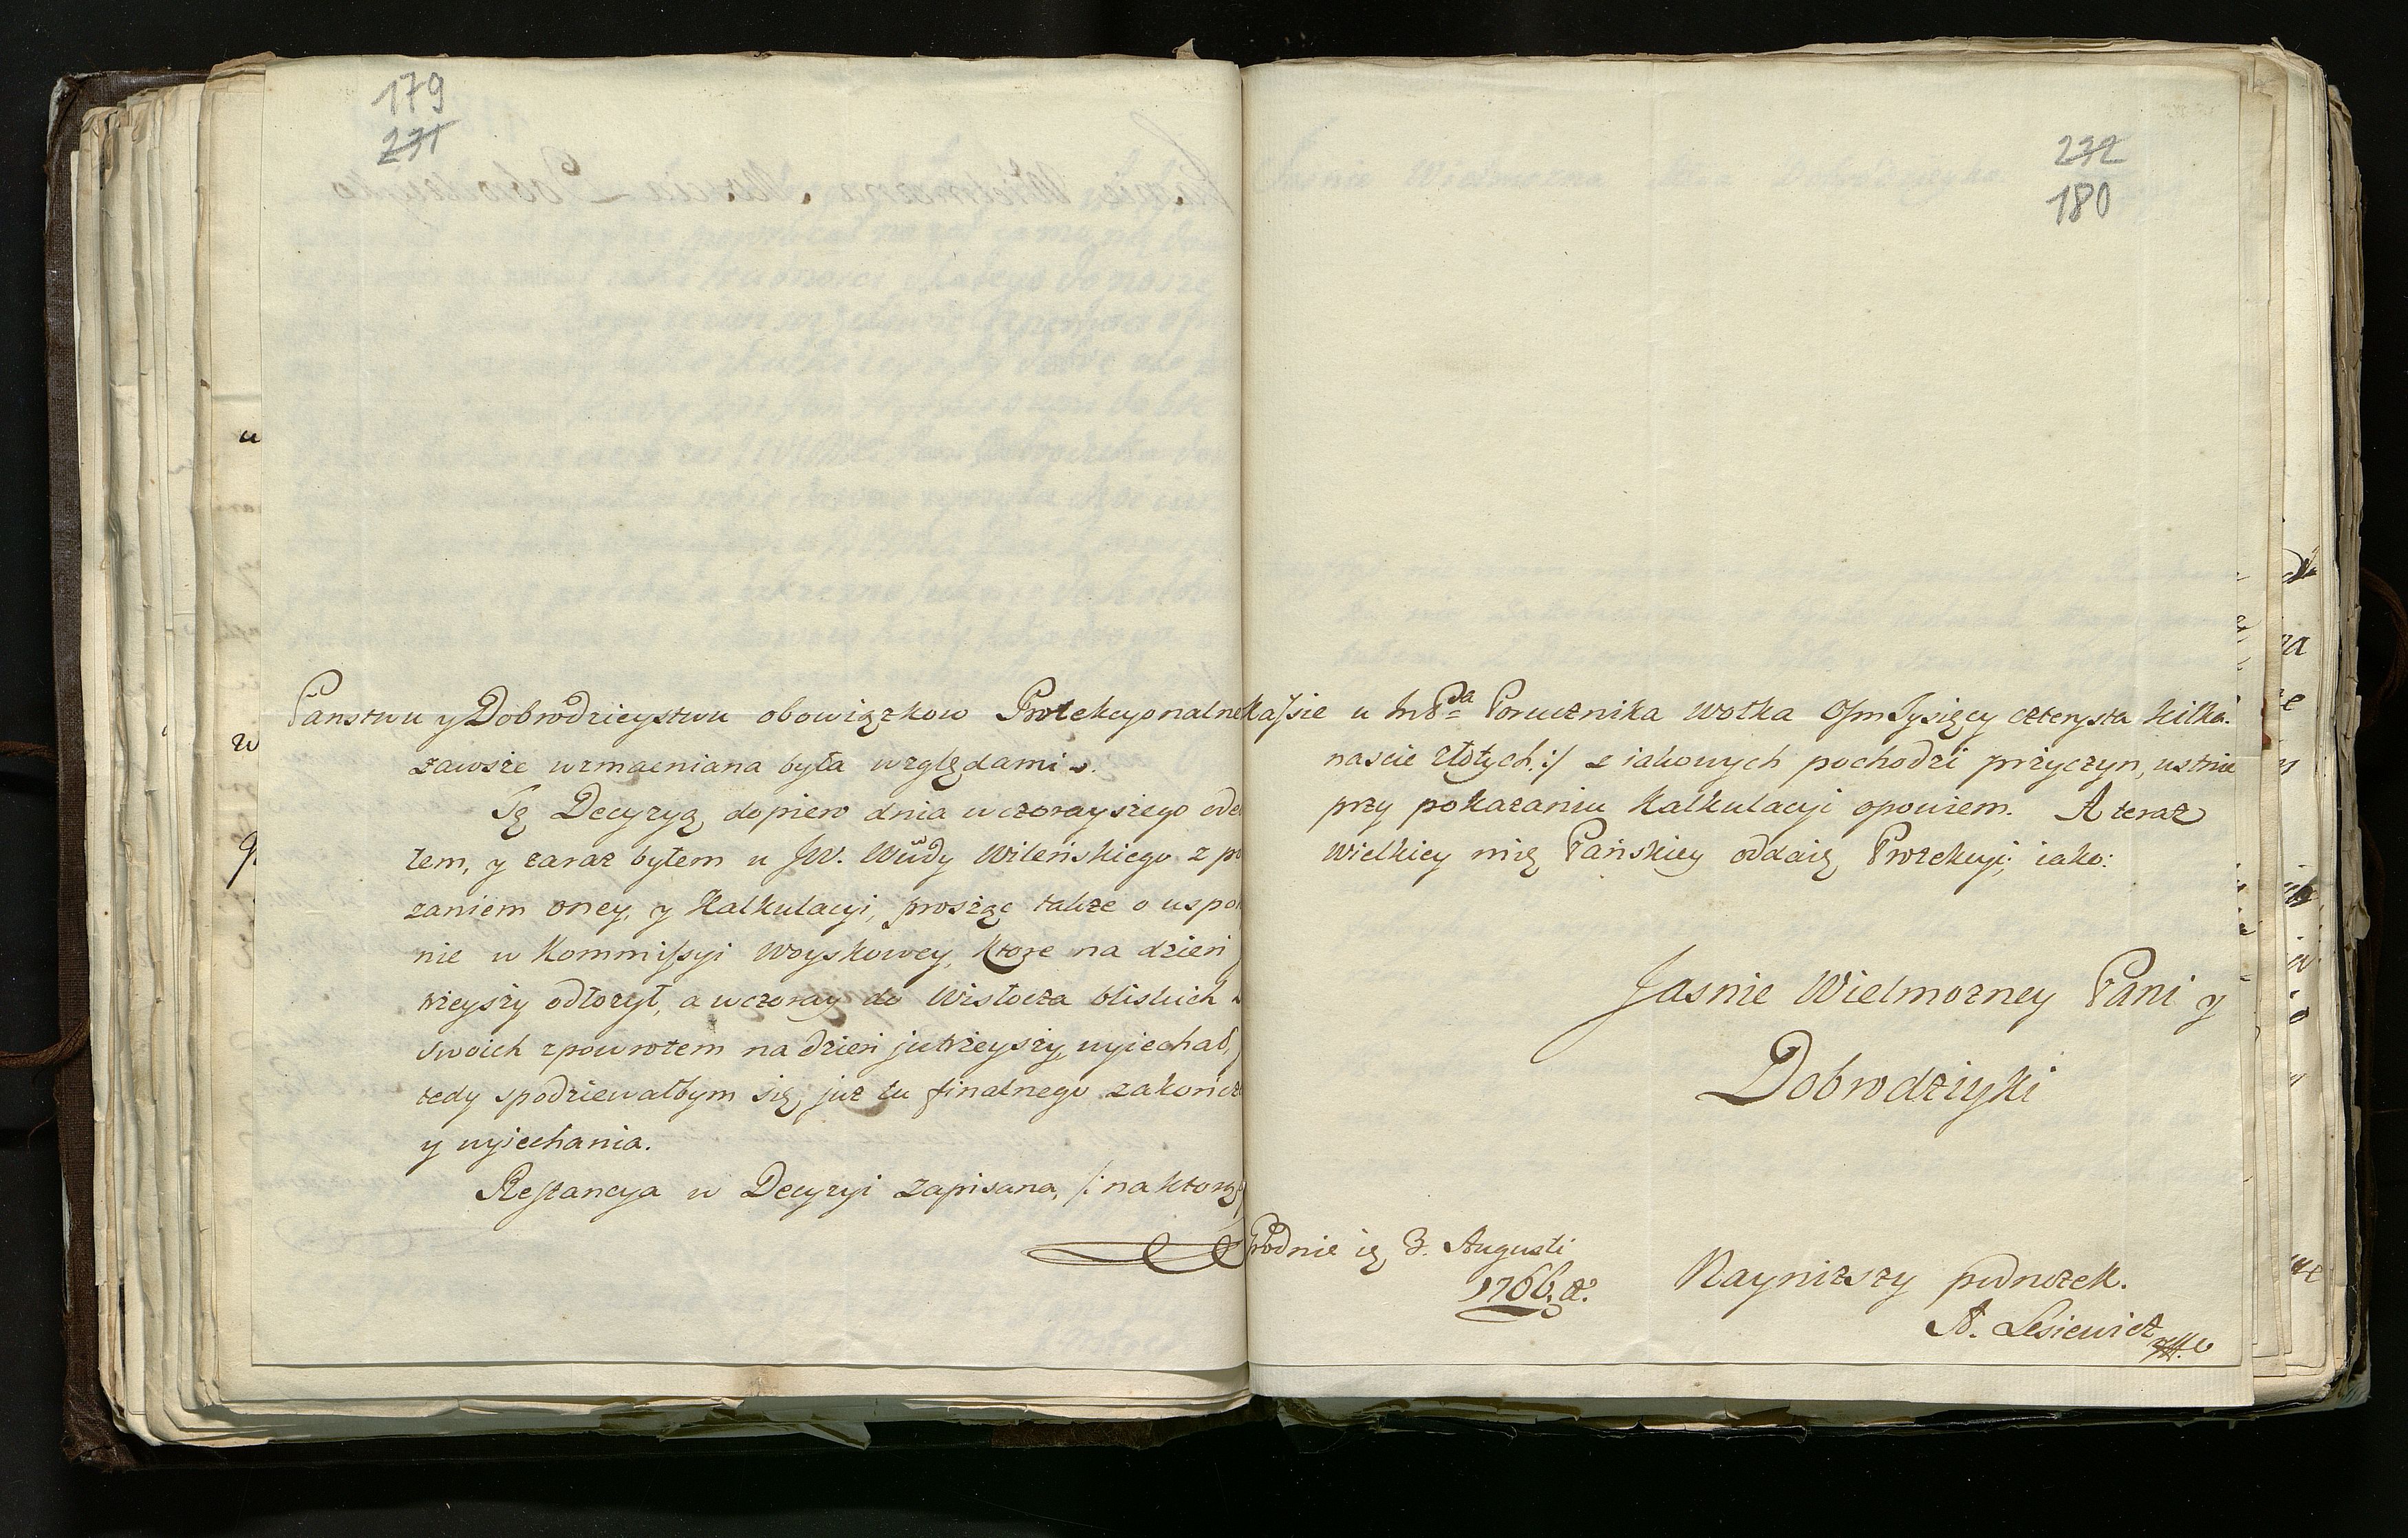 179
231
Państwu y Dobrodzieystwu obowiązkow Protekcyonalne
zawsze wzmacniana była względami.
Tę Decyzyą dopiero dnia wczorayszego ode
tem, y zaraz byłem u JW. Wdy Wileńskiego z po
zaniem oney, y Kalkulacyi, prosząc także o uspo
nie w Kommissyi Woyskowey, ktore na dzień
trzeyszy odłożył, a wczoray do Wistocza bliskich
swoich z powrotem na dzień jutrzeyszy wyiechał,
tedy spodziewałbym się, już tu finalnego zakończ
y wyiechania.
Restancya w Decyzyi zapisana, /: na ktorą
232
180
kassie u Porucznika Wołka Osm Tysięcy czterysta kilka-
nascie złotych :/ z iakowych pochodzi przyczyn, ustnie
przy pokazaniu Kalkulacyi opowiem. A teraz
Wielkiey mię Pańskiey oddaię Protekcyi; iako:
Jasnie Wielmozney Pani y
Dobrodziyki
Grodnie 3. Augusti
1766.
Nayniższy podnożek.
A. Lesiewicz